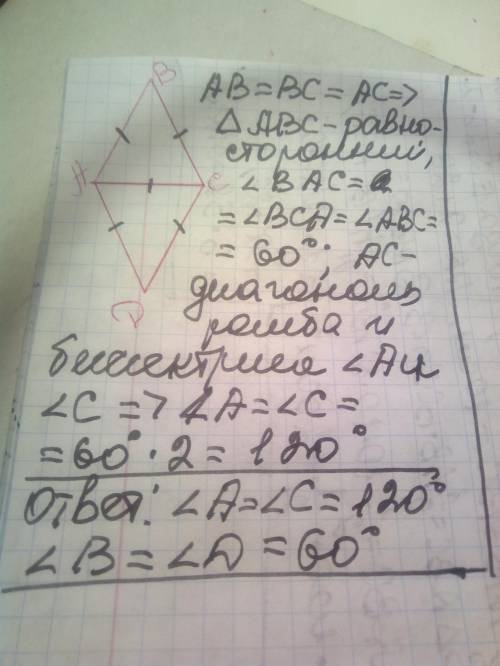 B
A
C
D
AB = BC = AC =>
△ABC - равно-
сторонний,
∠BAC =
= ∠BCA = ∠ABC =
= 60°; AC -
диагональ
ромба и
биссектриса ∠A и
∠C => ∠A = ∠C =
= 60° · 2 = 120°
Ответ: ∠A = ∠C = 120°
∠B = ∠D = 60°